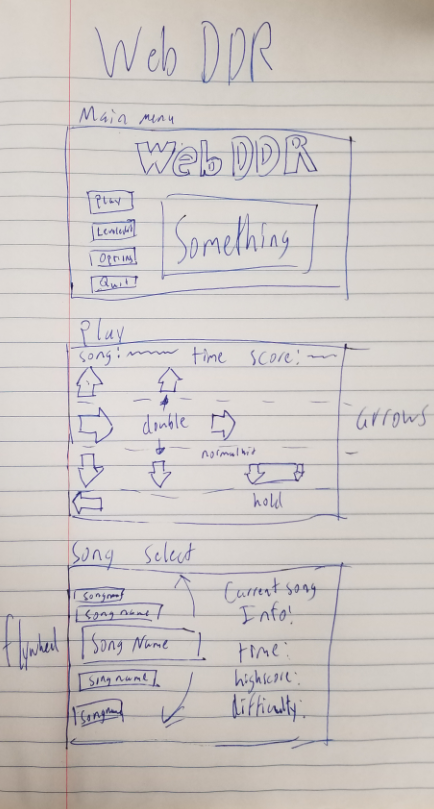 Web DDR
Main menu
Web DDR
Play
Something
Option
Quit
Play
song: time score:
double
normal hit
arrows
hold
Song Select
songname
song name
Song Name
song name
songname
flywheel
Current song
Info!
time:
highscore:
difficulty: